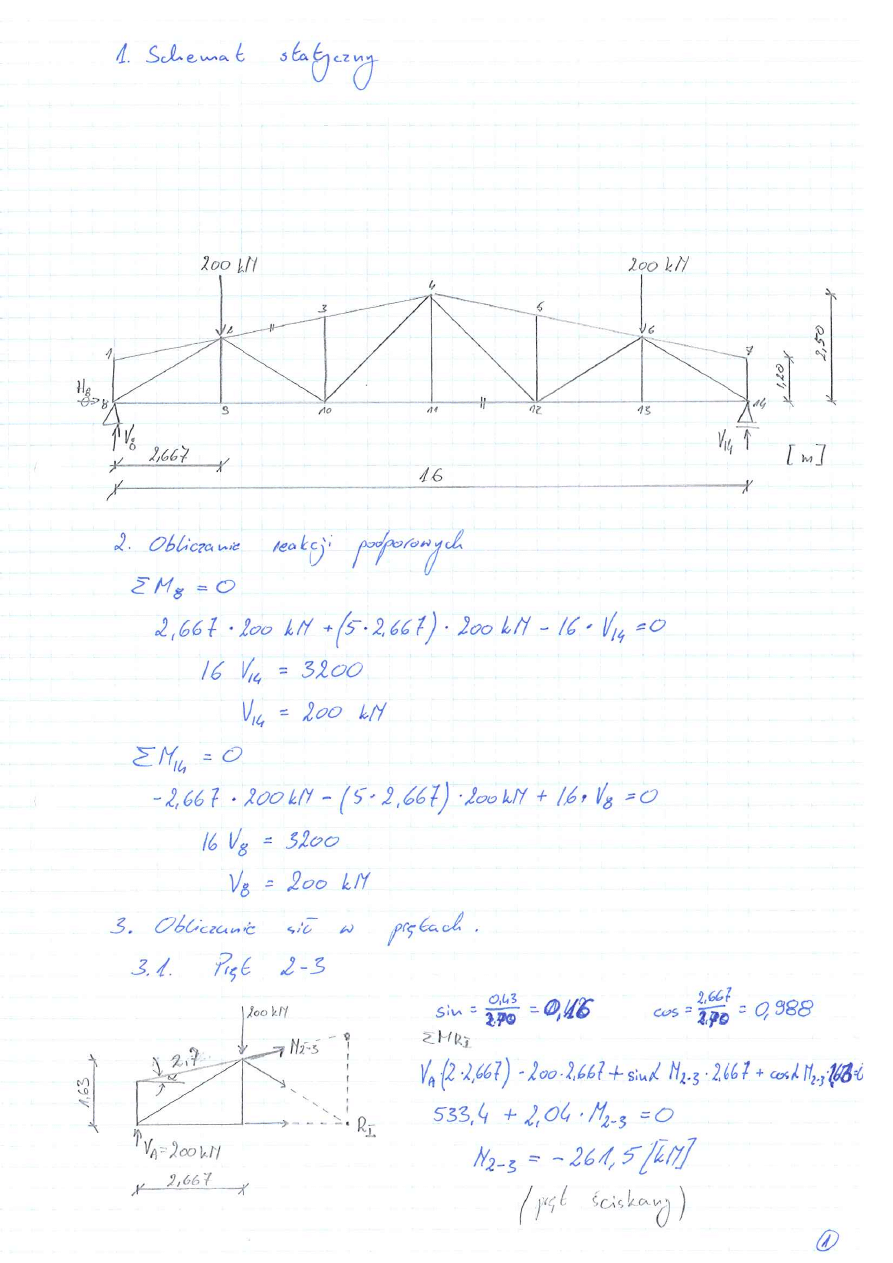 1. Schemat statyczny
200 kN 200 kN
4
3 5
2 6
1 7
H8
8 9 10 11 12 13 14
V8 V14
1,20 2,50
[m]
2,667
16
2. Obliczanie reakcji podporowych
ΣM8 = 0
2,667 · 200 kN + (5 · 2,667) · 200 kN - 16 · V14 = 0
16 V14 = 3200
V14 = 200 kN
ΣM14 = 0
-2,667 · 200 kN - (5 · 2,667) · 200 kN + 16 · V8 = 0
16 V8 = 3200
V8 = 200 kN
3. Obliczanie sił w prętach.
3.1. Pręt 2-3
sin = 0,43/2,70 = 0,16 cos = 2,667/2,70 = 0,988
ΣMRI
VA (2 · 2,667) - 200 · 2,667 + sinα N2-3 · 2,667 + cosα N2-3 · 1,63 = 0
533,4 + 2,04 · N2-3 = 0
N2-3 = - 261,5 [kN]
(pręt ściskany)
200 kN
N2-3
2,7
α
1,63
RI
VA = 200 kN
2,667
1